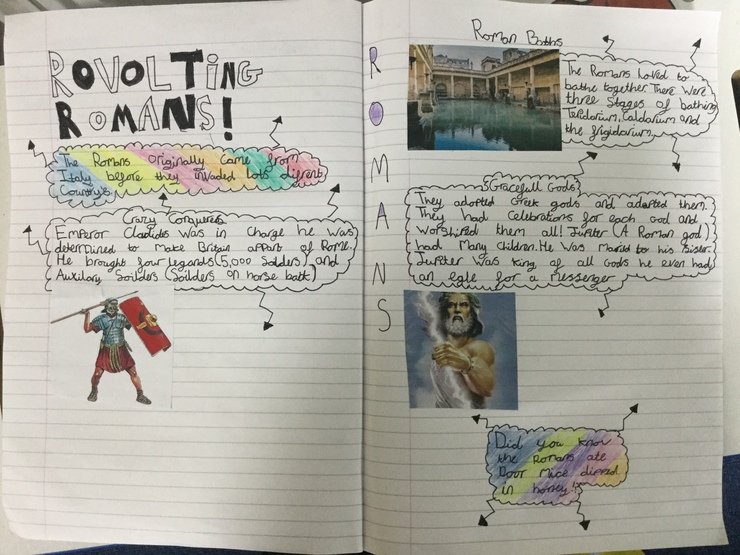 ROVOLTING
ROMANS!
The Romans originally came from
Italy before they invaded lots difrent
Country's
Crazy Conquerers
Emperor Claudis was in charge he was
determined to make Britain appart of Rome.
He brought four legands (5,000 Solders) and
Auxilary Soilders (Soilders on horse back)
ROMANS
Roman Baths
The Romans loved to
bathe together There were
three stages of bathing
Tepidarium, Caldarium and
the frigidarium.
Gracefull Gods
They adopted Greek gods and adapted them.
They had Celebrations for each God and
worshiped them all! Jupiter (A Roman god)
had many children. He was marrid to his sister.
Jupiter was King of all Gods he even had
an Egle for a messenger
Did you know
the Romans ate
Door mice dipped
in honey